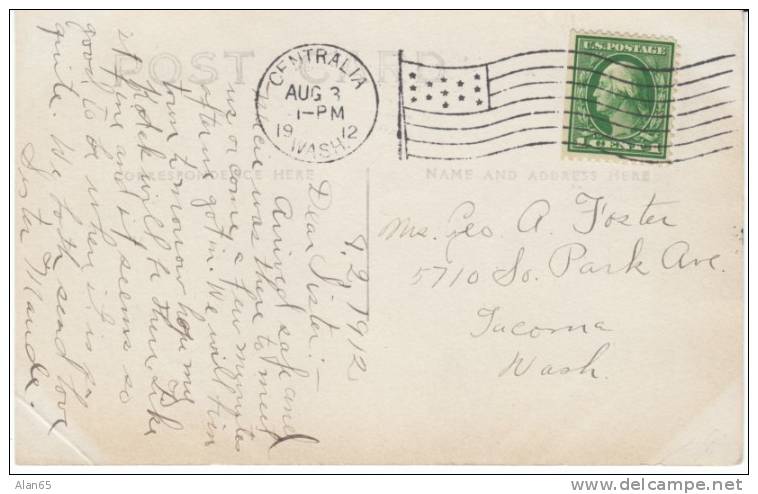 POST CARD
CENTRALIA
AUG 3
1-PM
1912
WASH.
U.S. POSTAGE
1 CENT 1
CORRESPONDENCE HERE
NAME AND ADDRESS HERE
8.2.1912
Dear Sister:-
Arrived safe and
was there to meet
us or came a few minutes
after we got in. We will
town tomorrow hope my
will be there. Like
it fine and it seems so
good to be where it is so
quite. We both send love
Sister Maude.
Mrs. Geo. A. Foster
5710 So. Park Ave.
Tacoma
Wash.
Alan65
www.delcampe.net